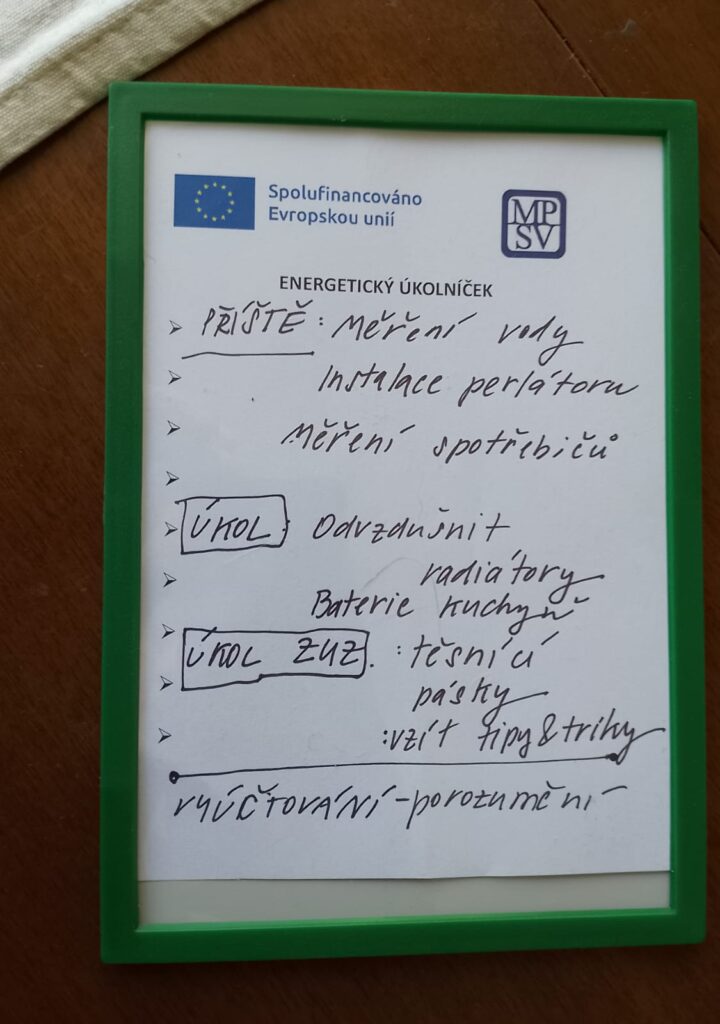 Spolufinancováno
Evropskou unií
MP
SV
ENERGETICKÝ ÚKOLNÍČEK
PŘÍŠTĚ: Měření vody
Instalace perlátoru
Měření spotřebičů
ÚKOL: Odvzdušnit
radiátory
Baterie kuchyň
ÚKOL ZUZ. : těsnící
pásky
:vzít tipy&triky
VYÚČTOVÁNÍ-porozumění